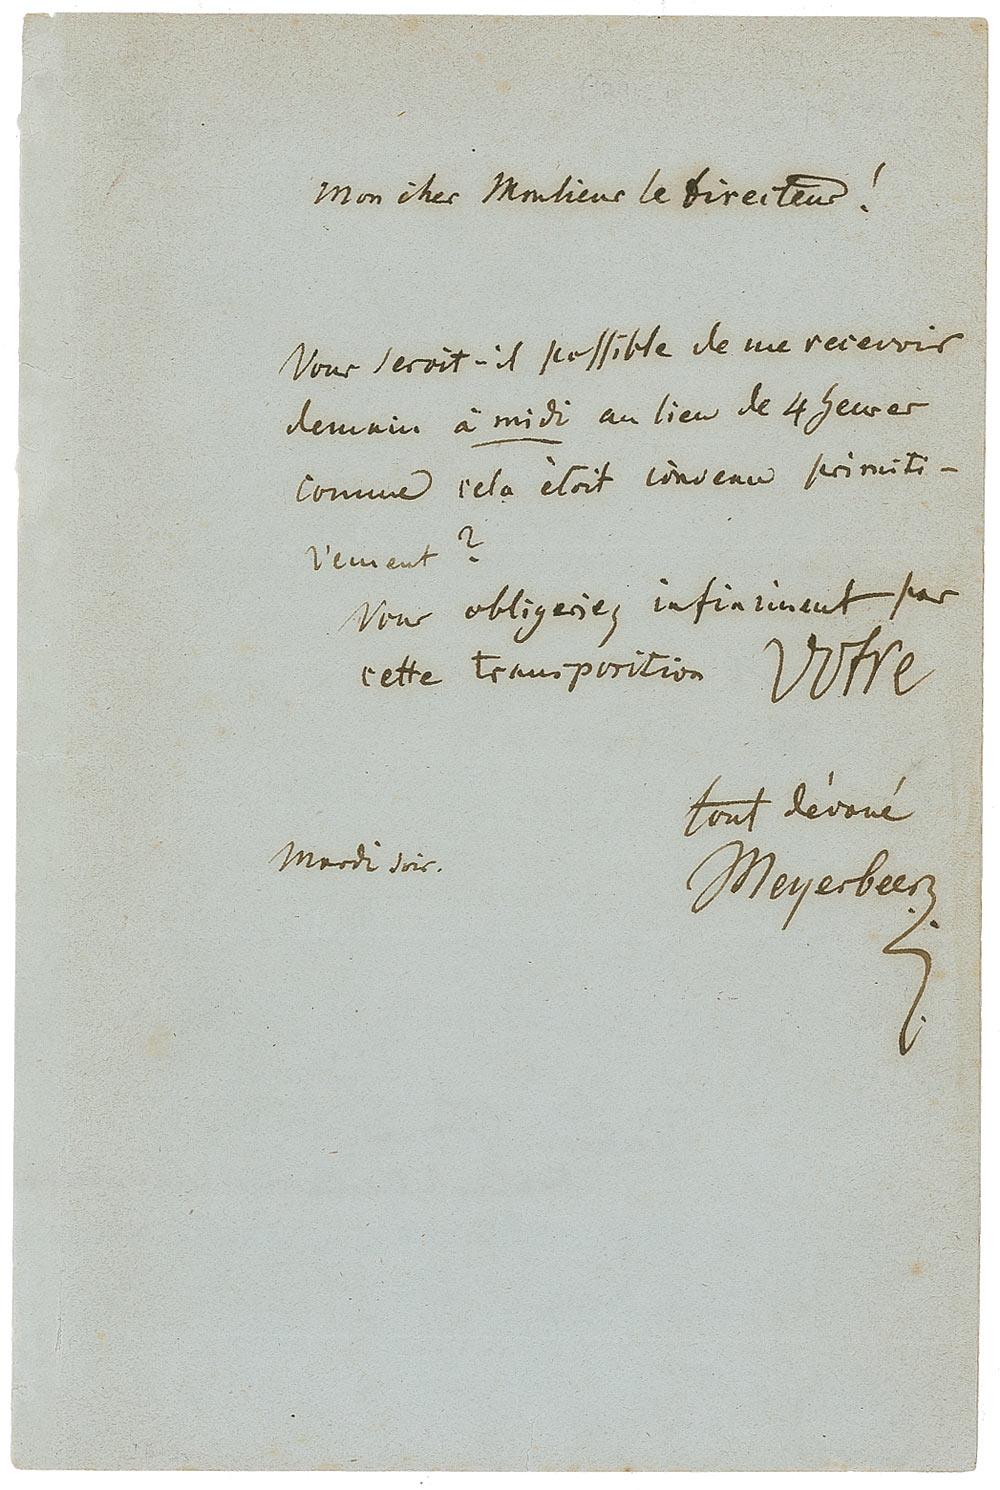 Mon cher Monsieur le Directeur!
Vous seroit-il possible de me recevoir
demain à midi au lieu de 4 heures
comme cela êtoit convenu primiti-
vement?
Vous obligeriez infiniment par
cette transposition Votre
tout dévoué
Mardi soir.
Meyerbeer